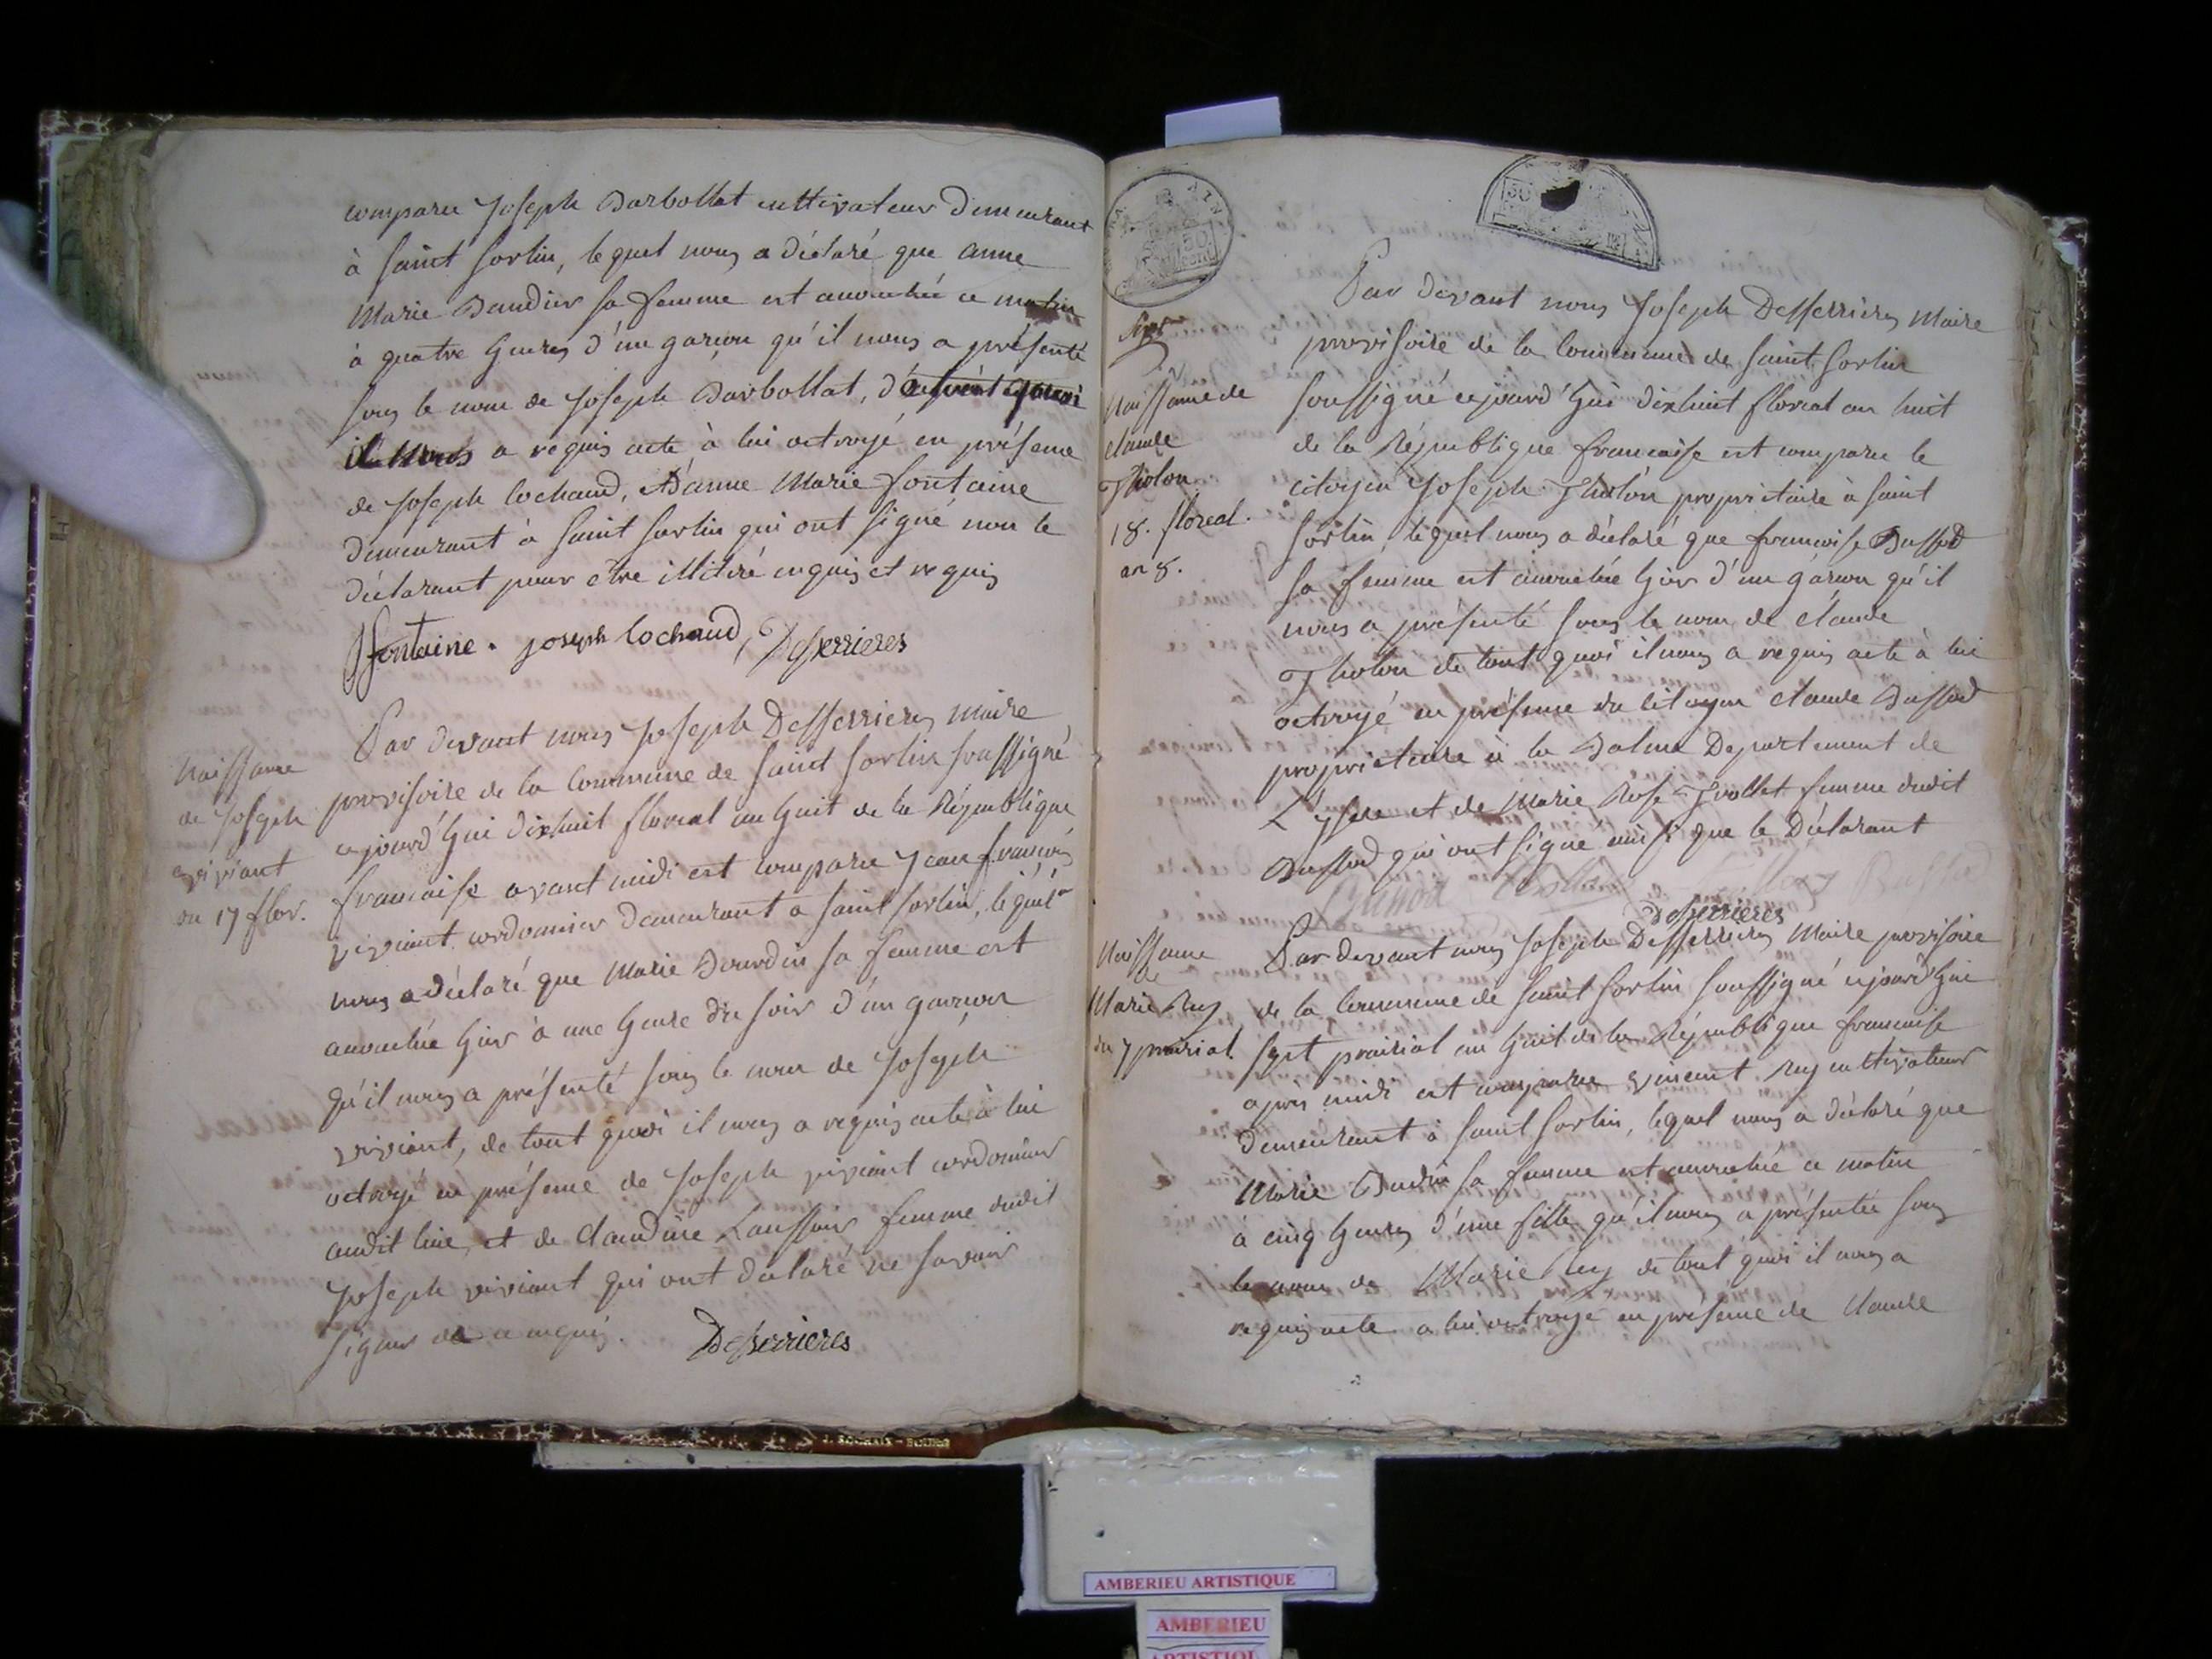 comparu Joseph Darbollat cultivateur demeurant
à Saint Sorlin, lequel nous a déclaré que anne
Marie Baudin sa femme est accouchée ce matin
à quatre heures d'un garçon qu'il nous a présenté
sous le nom de Joseph Darbollat, de tout quoi
il nous a requis acte à lui octroyé en présence
de Joseph Cochaud, d'anne Marie fontaine
demeurant à Saint Sorlin qui ont signé non le
déclarant pour être illitéré enquis et requis
fontaine . joseph Cochaud, Desserrieres
Par devant nous Joseph Desserrieres Maire
provisoire de la Commune de Saint Sorlin soussigné
cejourd'hui dixhuit floréal an huit de la République
francaise avant midi est comparu Jean françois
viviant cordonnier demeurant a saint Sorlin, lequel
nous a déclaré que Marie Bourdin sa femme est
accouchée hier à une heure du soir d'un garçon
qu'il nous a présenté sous le nom de Joseph
viviant, de tout quoi il nous a requis acte à lui
octroyé en présence de Joseph viviant cordonnier
audit lieu, et de Claudine femme dudit
Joseph viviant qui ont déclaré ne savoir
signer de ce enquis. Desserrieres
Naissance
de Joseph
viviant
du 17 flor.
Sept
Naissance de
claude
Tholon
18. floreal.
an 8.
Par devant nous Joseph Desserrieres Maire
provisoire de la Commune de Saint Sorlin
soussigné cejourd'hui dixhuit floreal an huit
de la République francaise est comparu le
citoyen Joseph Tholon propriétaire à Saint
Sorlin, lequel nous a déclaré que francoise Buffod
sa femme est accouchée hier d'un garcon qu'il
nous a présenté sous le nom de claude
Tholon de tout quoi il nous a requis acte à lui
octroyé en présence du Citoyen claude Buffod
propriétaire à la Balme Departement de
L'ysere et de Marie Rose femme dudit
Buffod qui ont signé ainsi que le Déclarant
Desserrieres
Naissance
de
Marie Ruy
du 7 prairial.
Par devant nous Joseph Desserrieres Maire provisoire
de la Commune de Saint Sorlin soussigné cejourd'hui
sept prairial an huit de la République francaise
apres midi est comparu vincent Ruy cultivateur
demeurant à Saint Sorlin, lequel nous a déclaré que
Marie Baudin sa femme est accouchée ce matin
à cinq heures d'une fille qu'il nous a présentée sous
le nom de Marie Ruy de tout quoi il nous a
requis acte a lui octroyé en présence de Claude
J. ROCHAIX - BOURG
AMBERIEU ARTISTIQUE
AMBERIEU